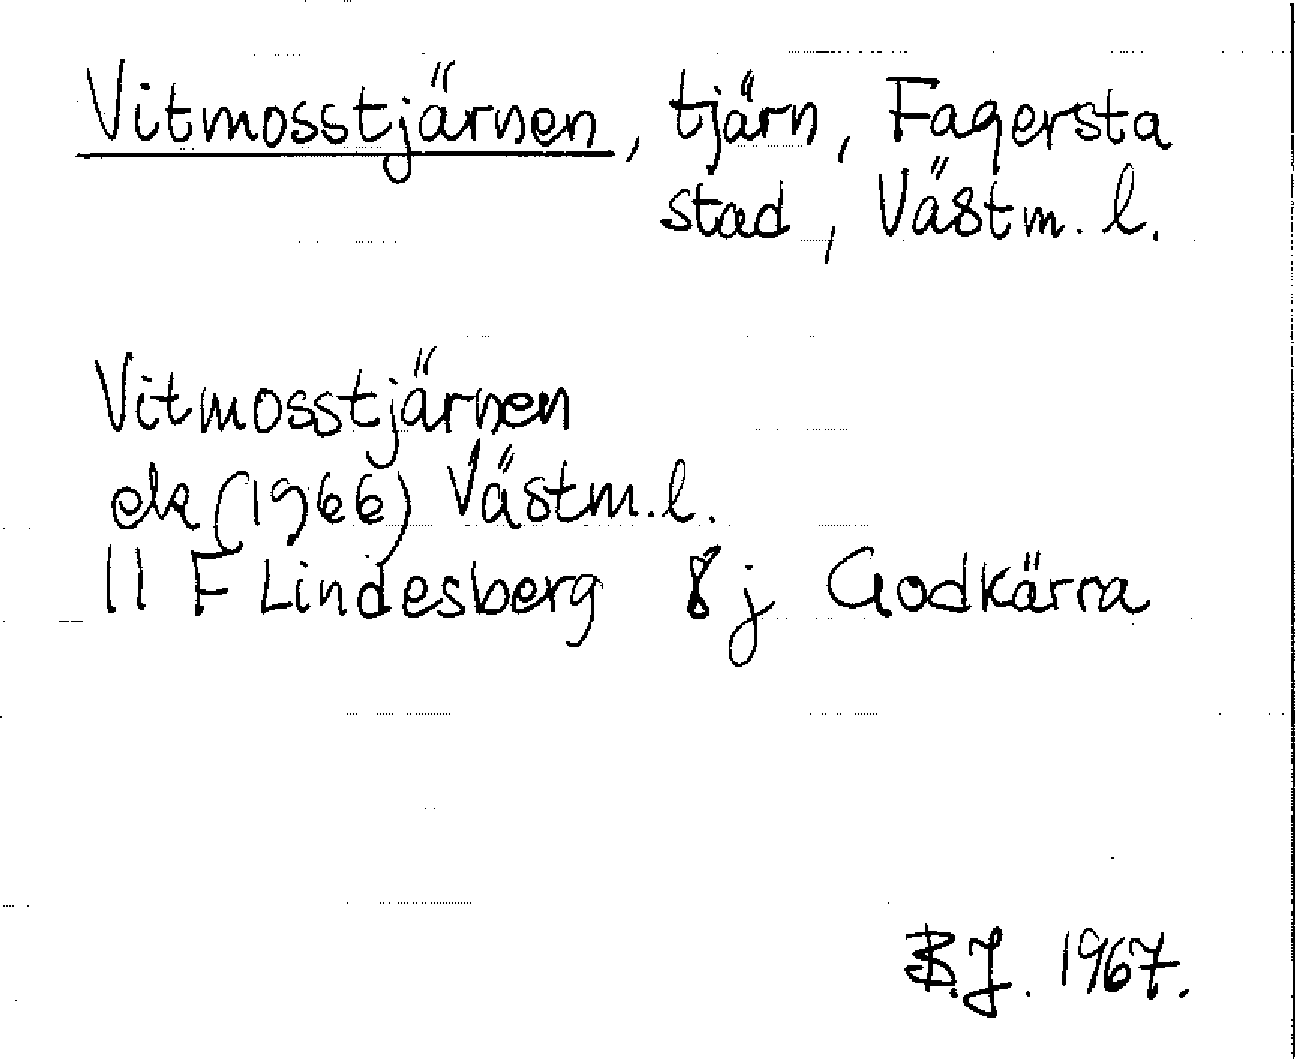 Vitmosstjärnen, tjärn, Fagersta
stad, Västm. l.
Vitmosstjärnen
ek (1966) Västm. l.
11 F Lindesberg 8 j Godkärra
B.J. 1967.